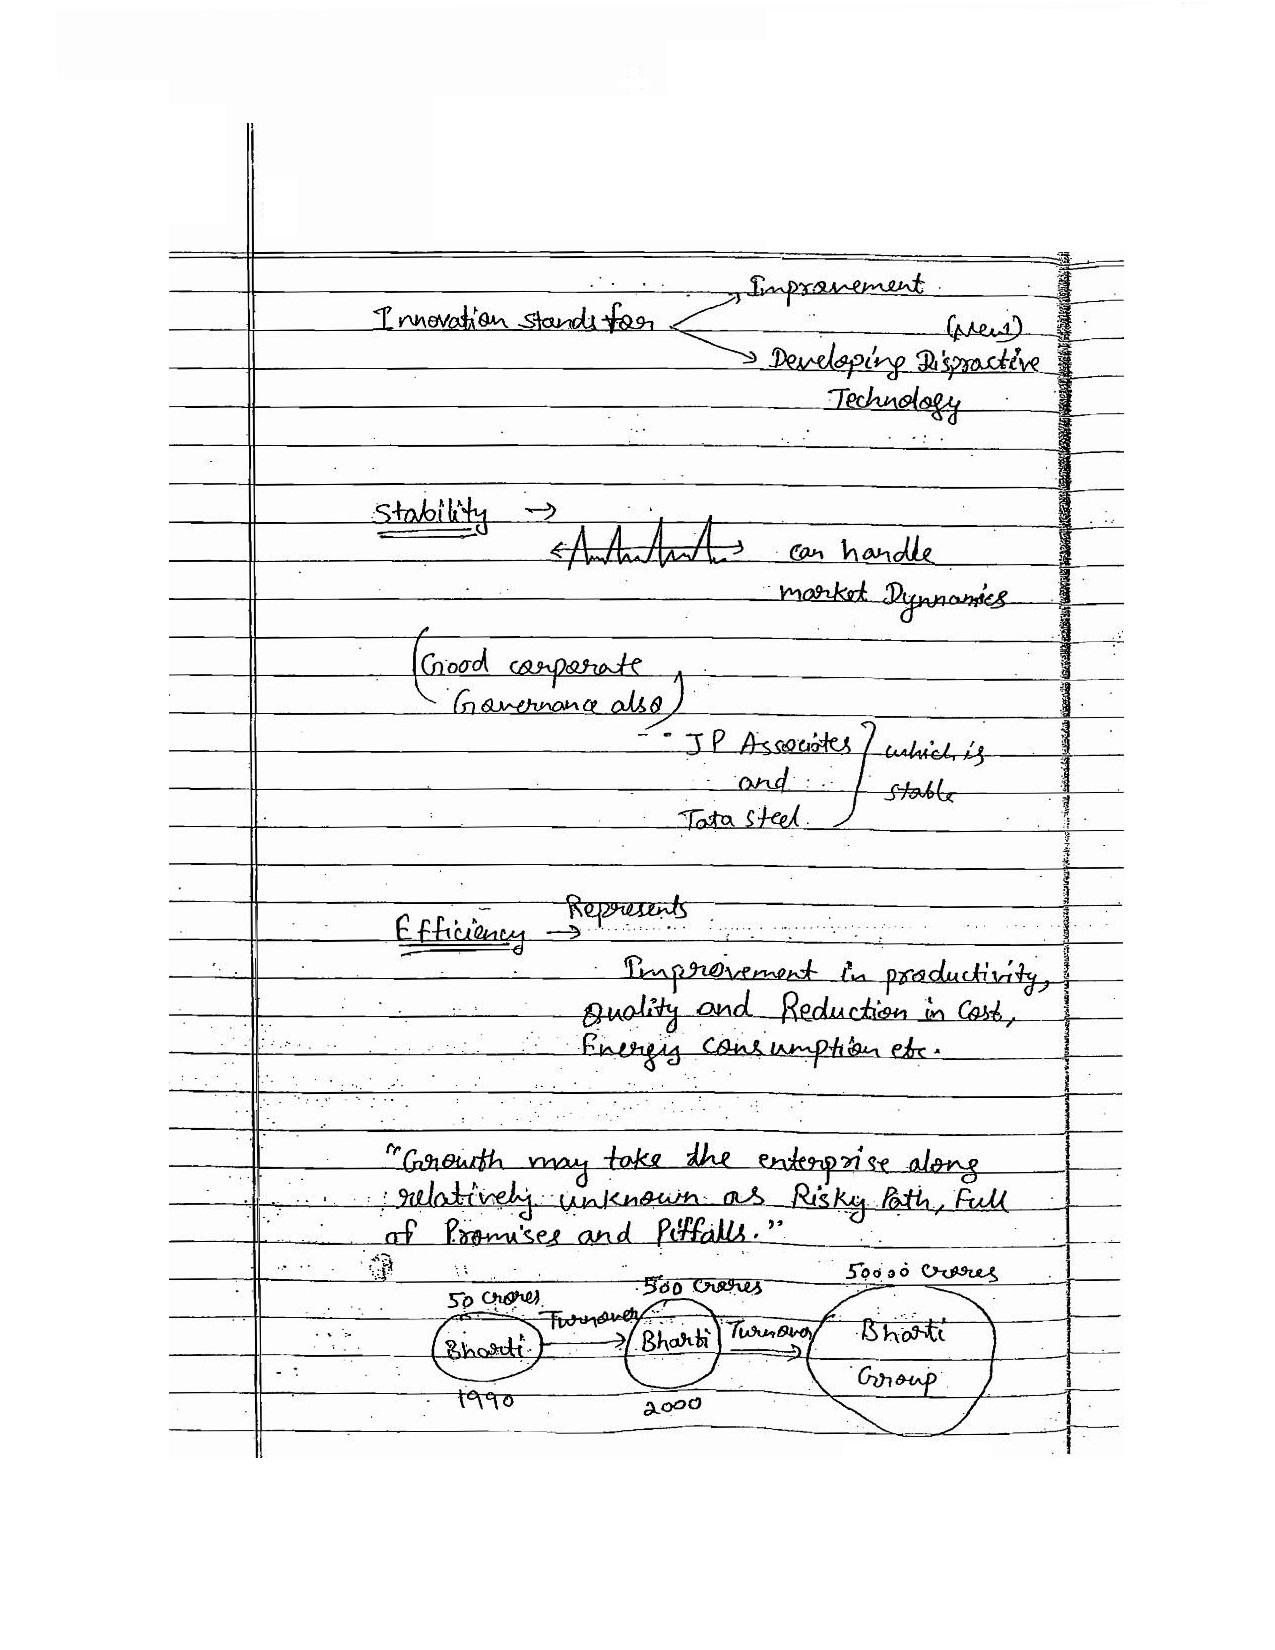 Improvement
Innovation stands for
(New)
Developing Dispractive
Technology
Stability →
can handle
market Dynnamics
(Good corporate
Governance also)
JP Associates
and
Tata Steel
which is
stable
Efficiency → Represents
Improvement in productivity,
Quality and Reduction in Cost,
Energy consumption etc.
"Growth may take the enterprise along
relatively unknown as Risky Path, Full
of Promises and Piffalls."
50 Crores 500 Crores 50000 Crores
Bharti Turnover Bharti Turnover Bharti
Group
1990 2000